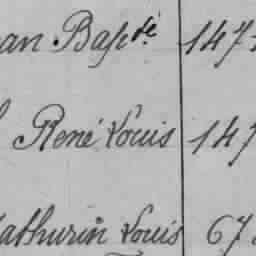 an Bapte 147
René Louis 147
athurin Louis 67